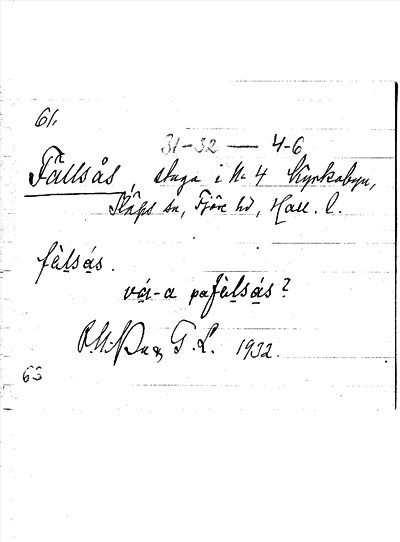 61.
31-32 — 4-6
Fällsås, stuga i N. 4 Kyrkobyn,
Släps sn, Fjäre hd, Hall. l.
fälsás.
vái-a pa fälsás?
G. L. 1932.
63